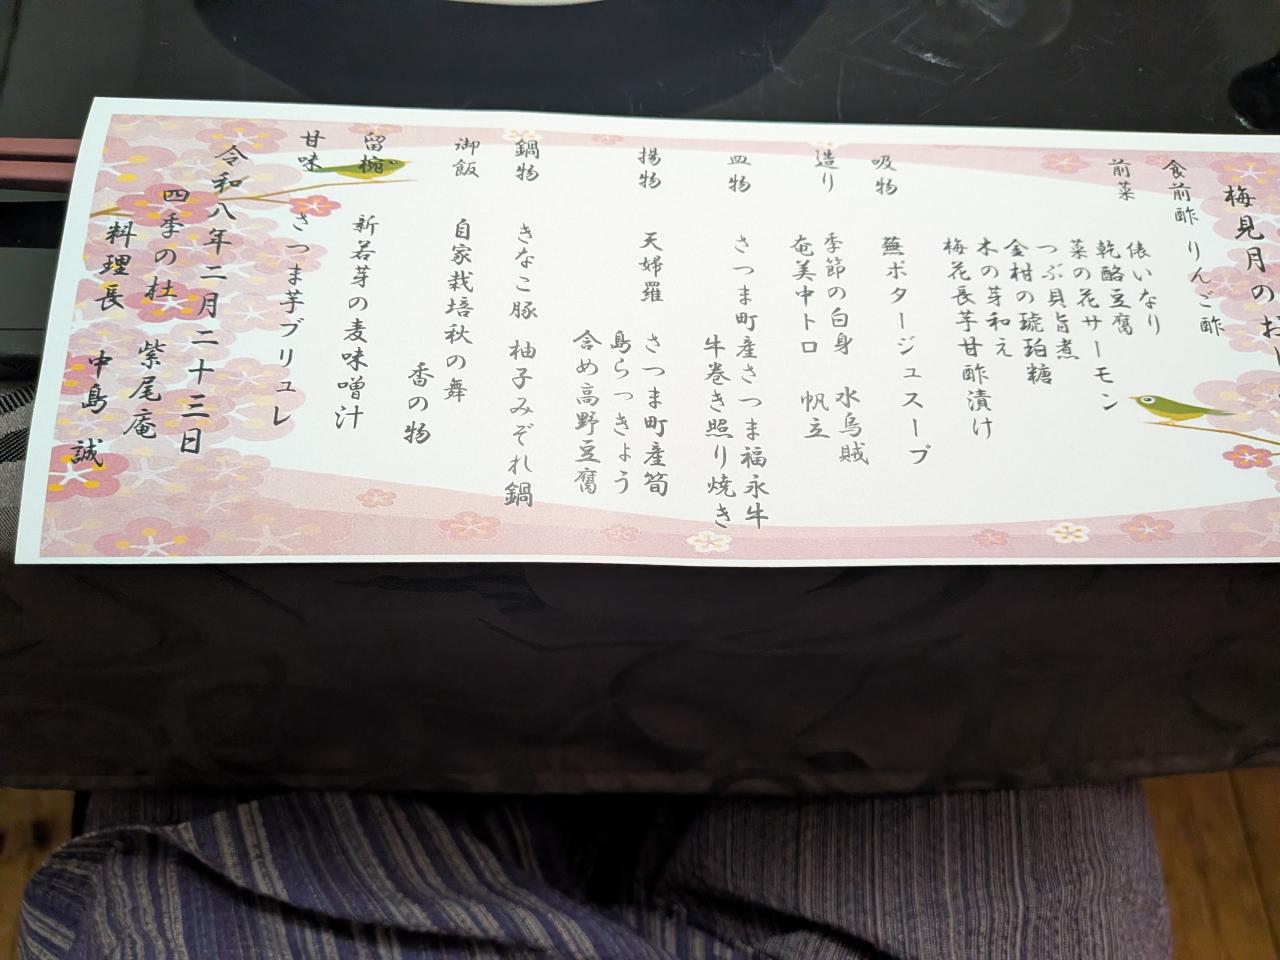 梅見月のお
食前酢 りんご酢
前菜
俵いなり
乾酪豆腐
菜の花サーモン
つぶ貝旨煮
金柑の琥珀糖
木の芽和え
梅花長芋甘酢漬け
吸物 蕪ポタージュスープ
造り 季節の白身 水烏賊
奄美中トロ 帆立
皿物 さつま町産さつま福永牛
牛巻き照り焼き
揚物 天婦羅 さつま町産筍
島らっきょう
含め高野豆腐
鍋物 きなこ豚 柚子みぞれ鍋
御飯 自家栽培秋の舞
香の物
留椀 新若芽の麦味噌汁
甘味 さつま芋ブリュレ
令和八年二月二十三日
四季の杜 紫尾庵
料理長 中島 誠